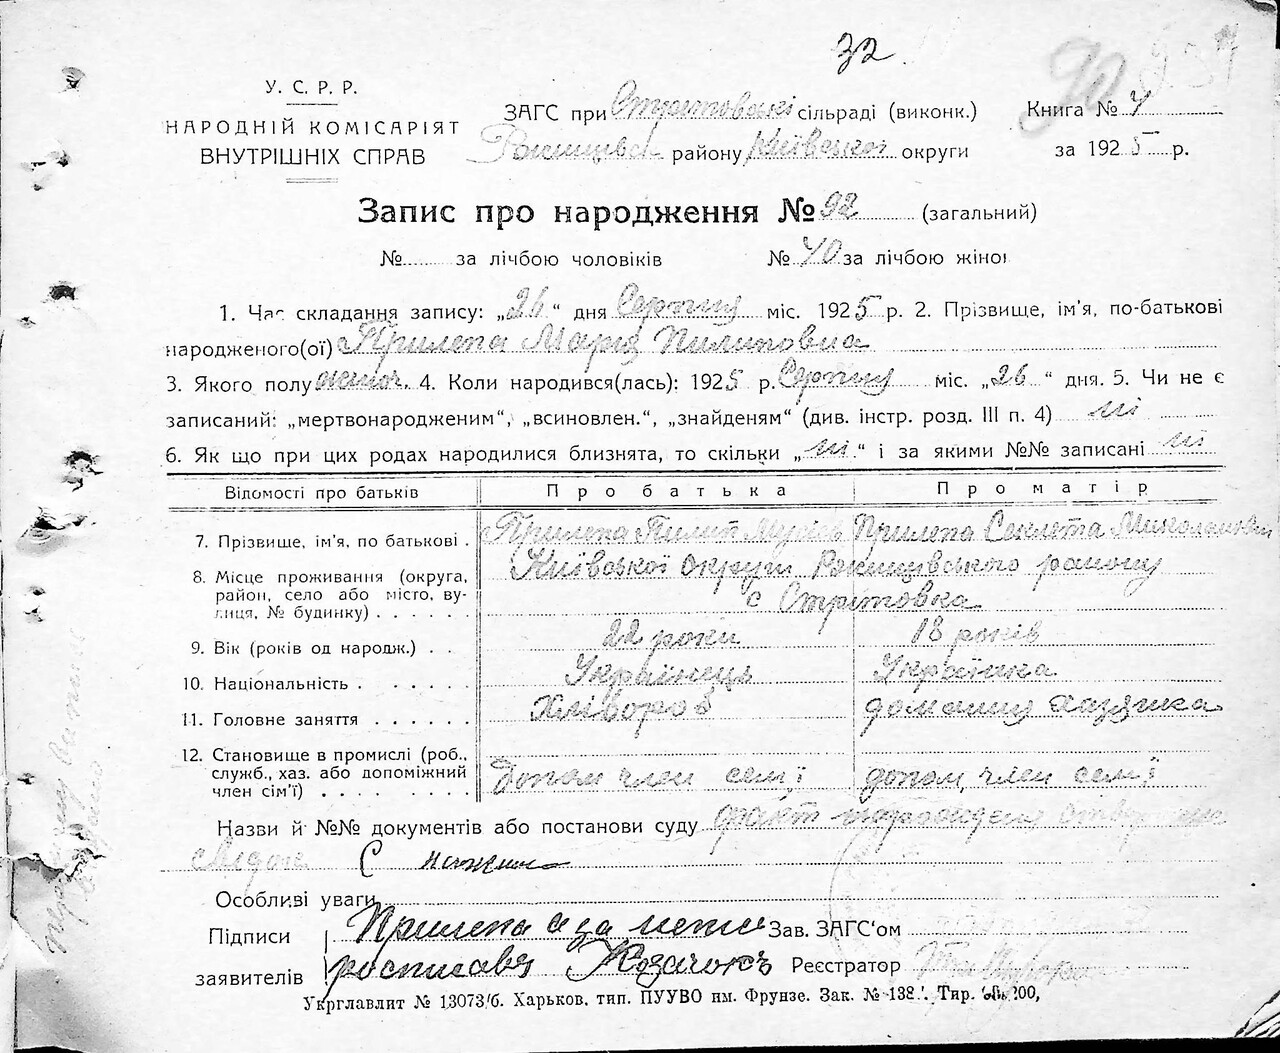 32.
У. С. Р. Р.
НАРОДНІЙ КОМІСАРІЯТ
ВНУТРІШНІХ СПРАВ
ЗАГС при Стритовські сільраді (виконк.)
району Київської округи
Книга № 4
за 1925 р.
Запис про народження № 92 (загальний)
№ за лічбою чоловіків № 40 за лічбою жіно
1. Час складання запису: „26“ дня Серпня міс. 1925 р. 2. Прізвище, ім'я, по-батькові
народженого(ої) Прилепа Марія Пилиповна
3. Якого полу жіноч. 4. Коли народився(лась): 1925 р. Серпня міс. „26“ дня. 5. Чи не є
записаний: „мертвонародженим“, „всиновлен.“, „знайденям“ (див. інстр. розд. III п. 4) ні
6. Як що при цих родах народилися близнята, то скільки „ні“ і за якими №№ записані ні
Відомості про батьків Про батька Про матір
7. Прізвище, ім'я, по батькові . Прилепа Пилип Мусіїв Прилепа Секлета Миколаєвна
8. Місце проживання (округа, Київської округи Рокищівського району
район, село або місто, ву- с Стрітовка
лиця, № будинку) . . . . . .
9. Вік (років од народж.) . . 22 роки 18 років
10. Національність . . . . . . . Українець Українка
11. Головне заняття . . . . . . Хлібороб домашня хазяйка
12. Становище в промислі (роб.,
служб., хаз. або допоміжний допом член семї допом, член семї
член сім'ї) . . . . . . . . .
Назви й №№ документів або постанови суду факт народження
Особливі уваги
Підписи Прилепа а за него Зав. ЗАГС'ом
заявителів росписався Козачокъ Реєстратор
Укрглавлит № 13073/б. Харьков. тип. ПУУВО им. Фрунзе. Зак. № 138 . Тир. 200,